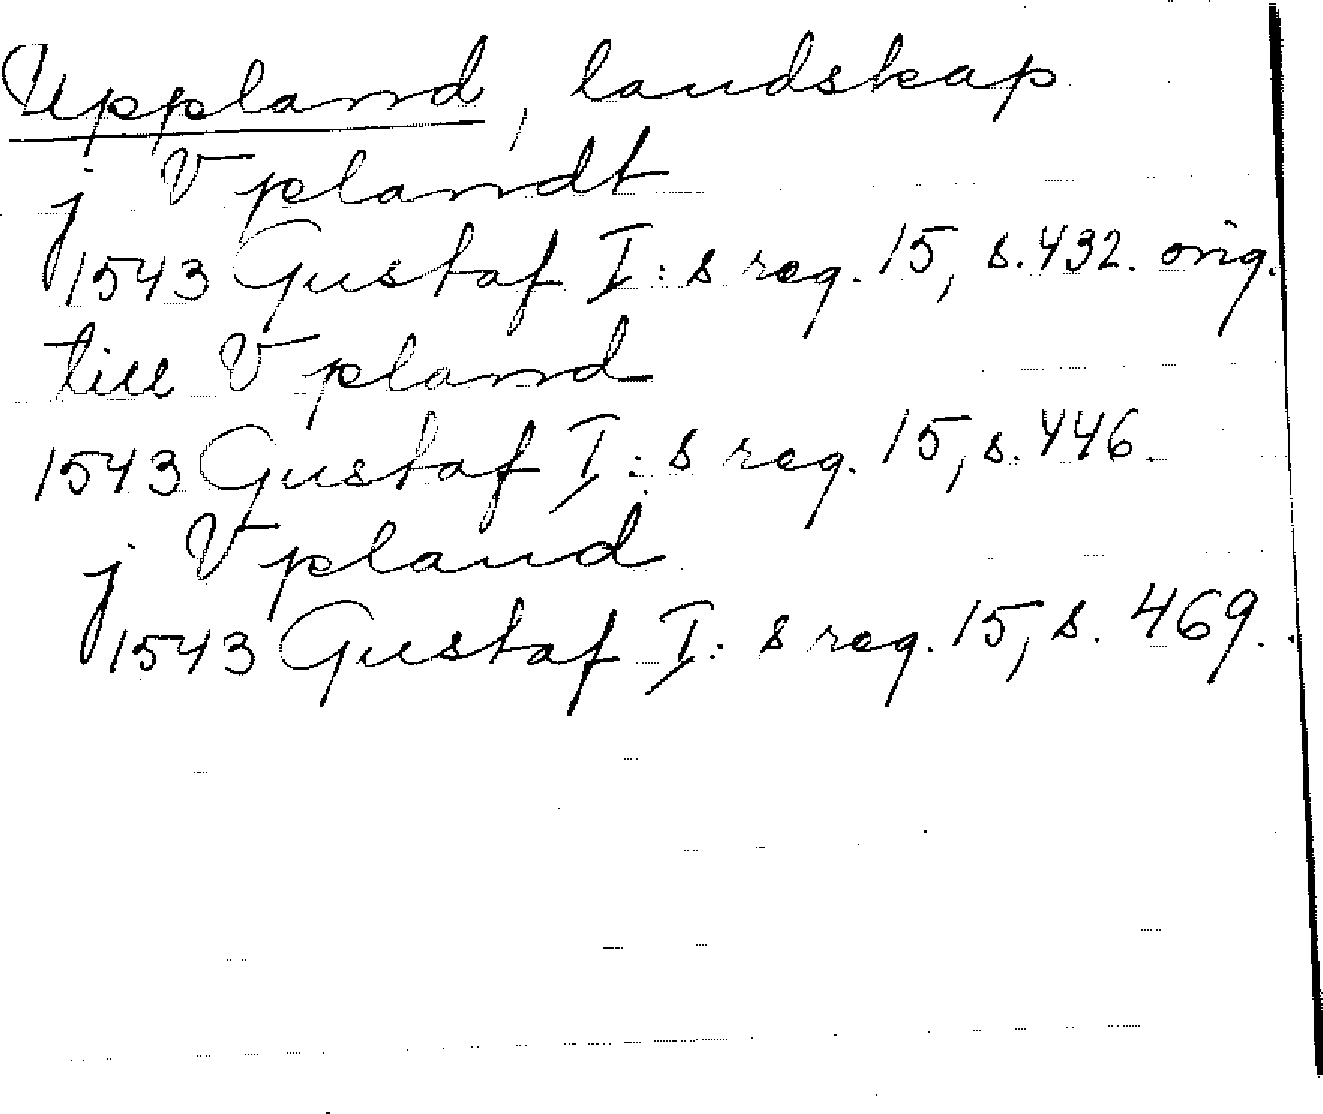 Uppland, landskap
j Vplandt
1543 Gustaf I: s reg. 15, s. 432. orig.
till Vpland
1543 Gustaf I: s reg. 15, s. 446.
j Vpland
1543 Gustaf I: s reg. 15, s. 469.